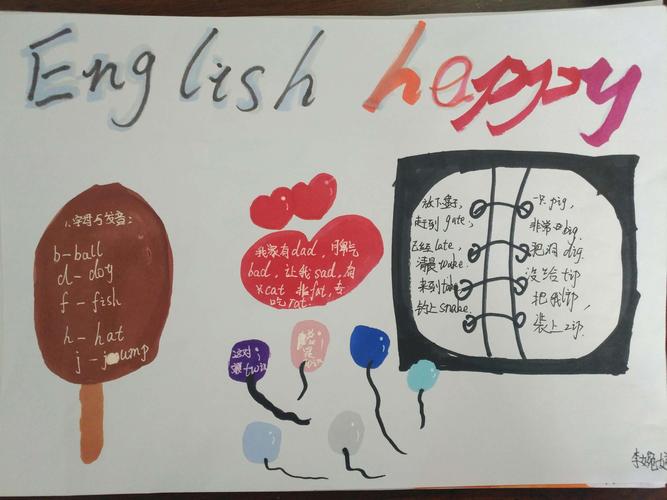 English happy
1.字母与发音:
b-ball
d-dog
f-fish
h-hat
j-jump
我家有dad, 脾气
bad, 让我sad, 有
cat 非fat, 专
吃rat.
放下盘子,
赶到gate,
已经late,
清晨wake.
来到
钓上snake.
一只pig,
非常big.
把洞dig.
没给tip
把我
装上zip.
这对
twin